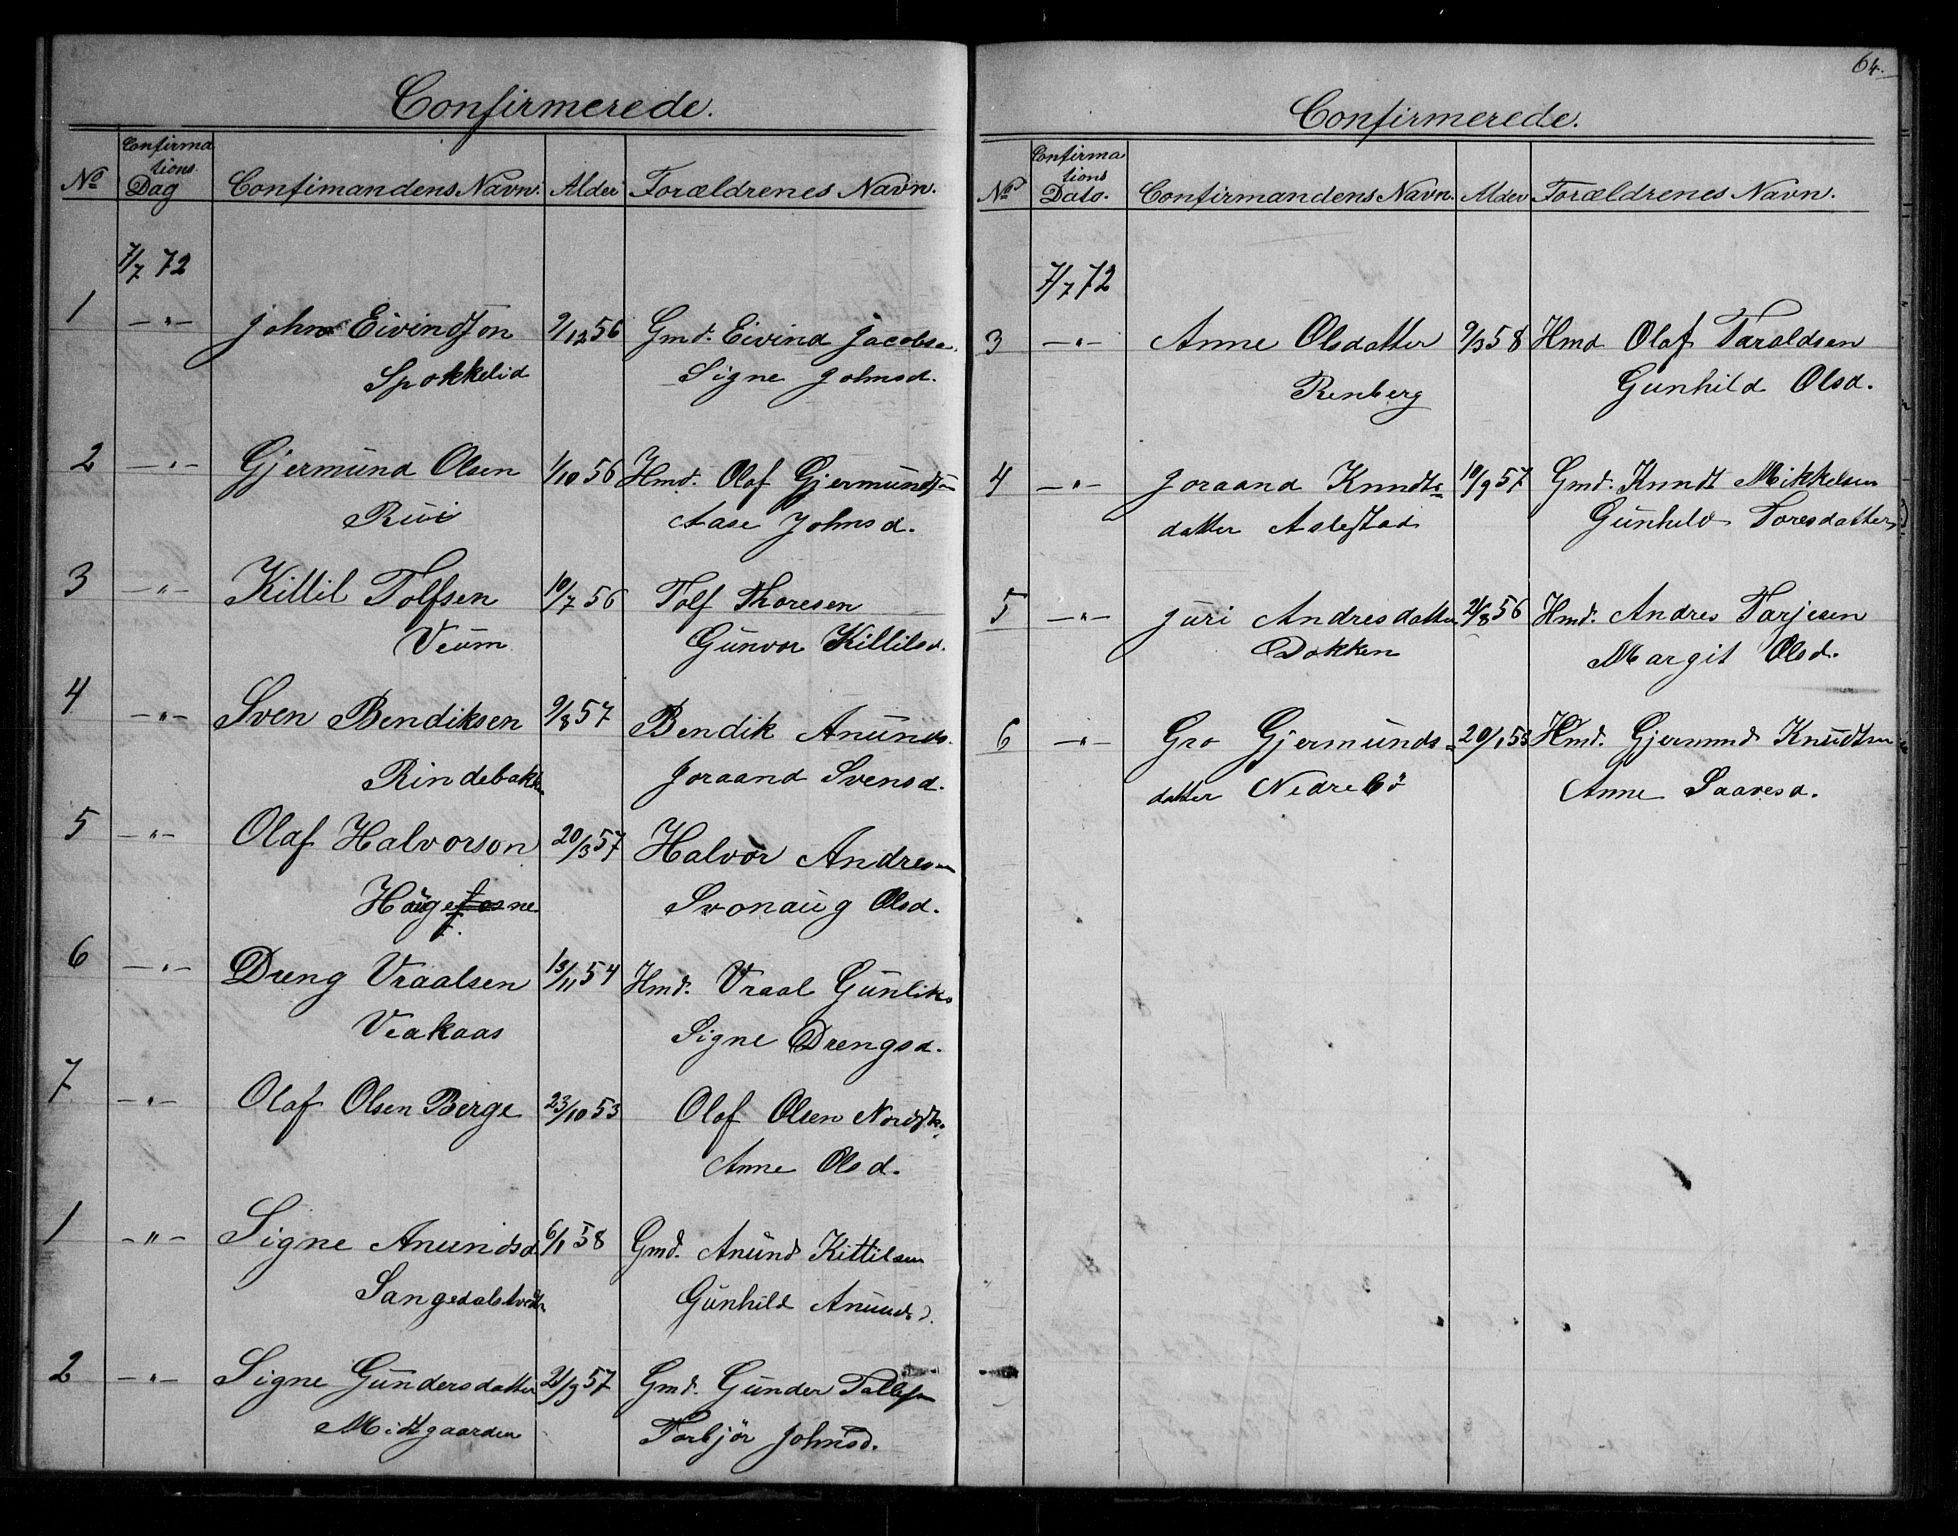 Confirmerede.
No Confirma tions. Dag Confimandens Navn. Alder Forældrenes Navn.
7/7 72
1 —"— John Eivindson 9/12 56 Gmd. Eivind Jacobse.
Spokkelid Signe Johnsd.
2 —"— Gjermund Olsen 1/10 56 Hmd. Olaf Gjermunds
Rui Aase Johnsd.
3 —"— Kittil Tolfsen 10/7 56 Tolf Thoresen
Veum Gunvor Kittilsd.
4 —"— Sven Bendiksen 9/8 57 Bendik Anunds.
Rindebakk Joraand Svensd.
5 —"— Olaf Halvorson 20/3 57 Halvor Andres
Svonaug Olsd.
6 —"— Dreng Vraalsen 13/11 54 Hmd. Vraal Gunliks
Veakaas Signe Drengsd.
7 —"— Olaf Olsen Berge 23/10 53 Olaf Olsen
Anne Olsd.
1 —"— Signe Anundsd. 6/1 58 Gmd. Anund Kittilsen
Gunhild Anundsd.
2 —"— Signe Gundersdatter 21/9 57 Gmd. Gunder
Midtgaarden Torbjør Johnsd.
64.
Confirmerede.
No Confirma tions Dato. Confirmandens Navn. Alder Forældrenes Navn.
7/7 72
3 —"— Anne Olsdatter 9/3 58 Hmd Olaf Taraldsen
Renberg Gunhild Olsd.
4 —"— Joraand Knudts= 10/9 57 Gmd. Knudt Mikkelsen
datter Aslestad Gunhild Toresdatter
5 —"— Juri Andresdatter 21/8 56 Hmd. Andres Tarjesen
Dokken Margit Olsd.
6 —"— Gro Gjermunds= 20/1 53 Hmd. Gjermund Knudtsen
datter Nedrebö Anne Saavesd.